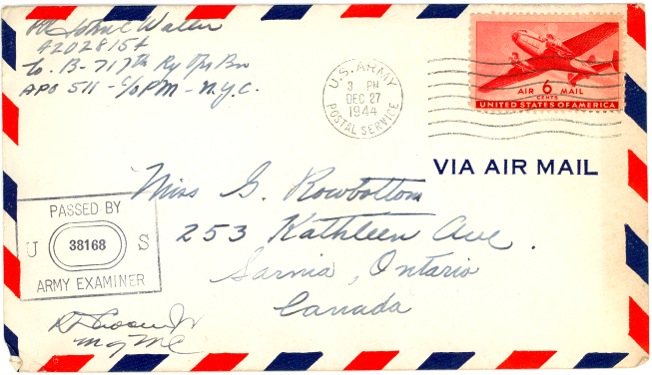 Pvt John C Waller
42028154
Co. B- 717th Ry Opr Bn
APO 511 - c/o PM - N.Y.C.
U.S. ARMY
3 PM
DEC 27
1944
POSTAL SERVICE
AIR 6 MAIL
CENTS
UNITED STATES OF AMERICA
VIA AIR MAIL
Miss G. Rowbottom
253 Kathleen Ave.
Sarnia, Ontario
Canada
PASSED BY
U 38168 S
ARMY EXAMINER